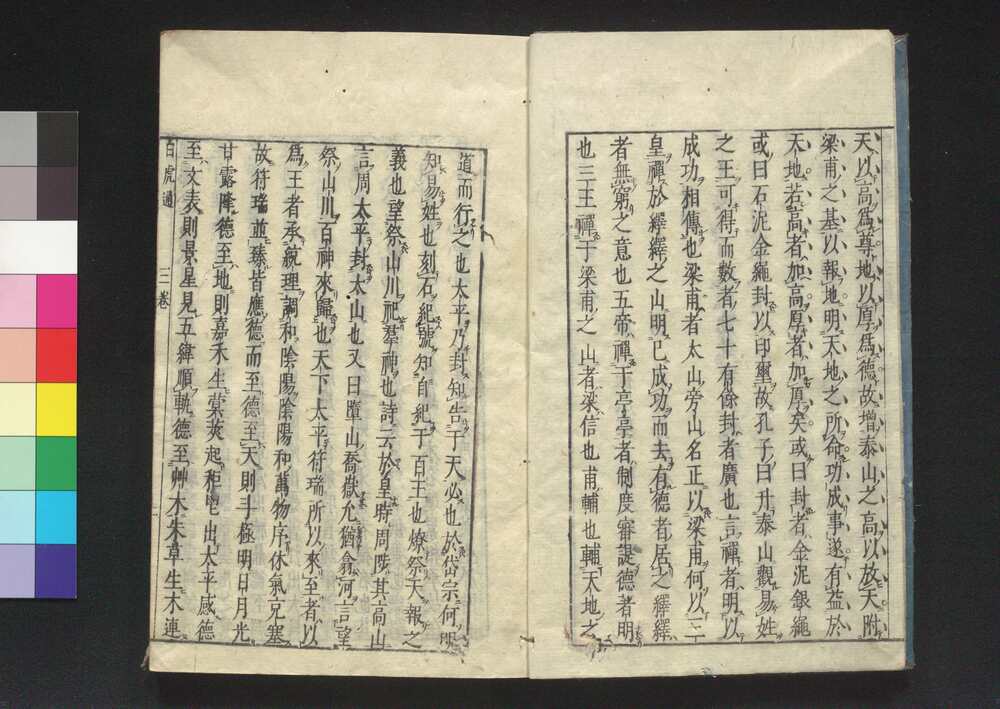 天以高爲尊地以厚爲德故增泰山之高以放天附
梁甫之基以報地明天地之所命功成事遂有益於
天地若高者加高厚者加厚矣或曰封者金泥銀繩
或曰石泥金繩封以印璽故孔子曰升泰山觀易姓
之王可得而數者七十有餘封者廣也言禪者明以
成功相傳也梁甫者太山旁山名正以梁甫何以三
皇禪於繹繹之山明已成功而去有德者居之繹繹
者無窮之意也五帝禪于亭亭者制度審諟德著明
也三王禪于梁甫之山者梁信也甫輔也輔天地之
道而行之也太平乃封知告于天必也於岱宗何明
知易姓也刻石紀號知自紀于百王也燎祭天報之
義也望祭山川祀羣神也詩云於皇時周陟其高山
言周太平封太山也又曰墮山喬嶽允猶翕河言望
祭山川百神來歸也天下太平符瑞所以來至者以
爲王者承統理調和陰陽陰陽和萬物序休氣充塞
故符瑞並臻皆應德而至德至天則斗極明日月光
甘露降德至地則嘉禾生蓂莢起秬鬯出太平感德
至文表則景星見五緯順軌德至艸木朱草生木連
白虎通 三卷